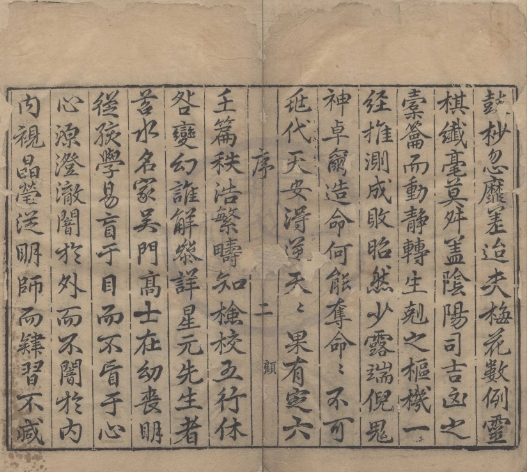 鼓杪忽靡差迨夫梅花數例靈
棋纖毫莫舛盖陰陽司吉凶之
橐籥而動靜轉生剋之樞機一
經推測成敗昭然少露端倪鬼
神卓爾造命何能奪命〻不可
代天安得逆天〻果有定六
序 二
壬篇秩浩繁疇知檢校五行休
咎變幻誰解祭詳星元先生者
苕水名家吴門髙士在幼喪明
從孩學易盲于目而不盲于心
心源澄澈闇扵外而不闇扵内
内視晶瑩從明師而肄習不咸